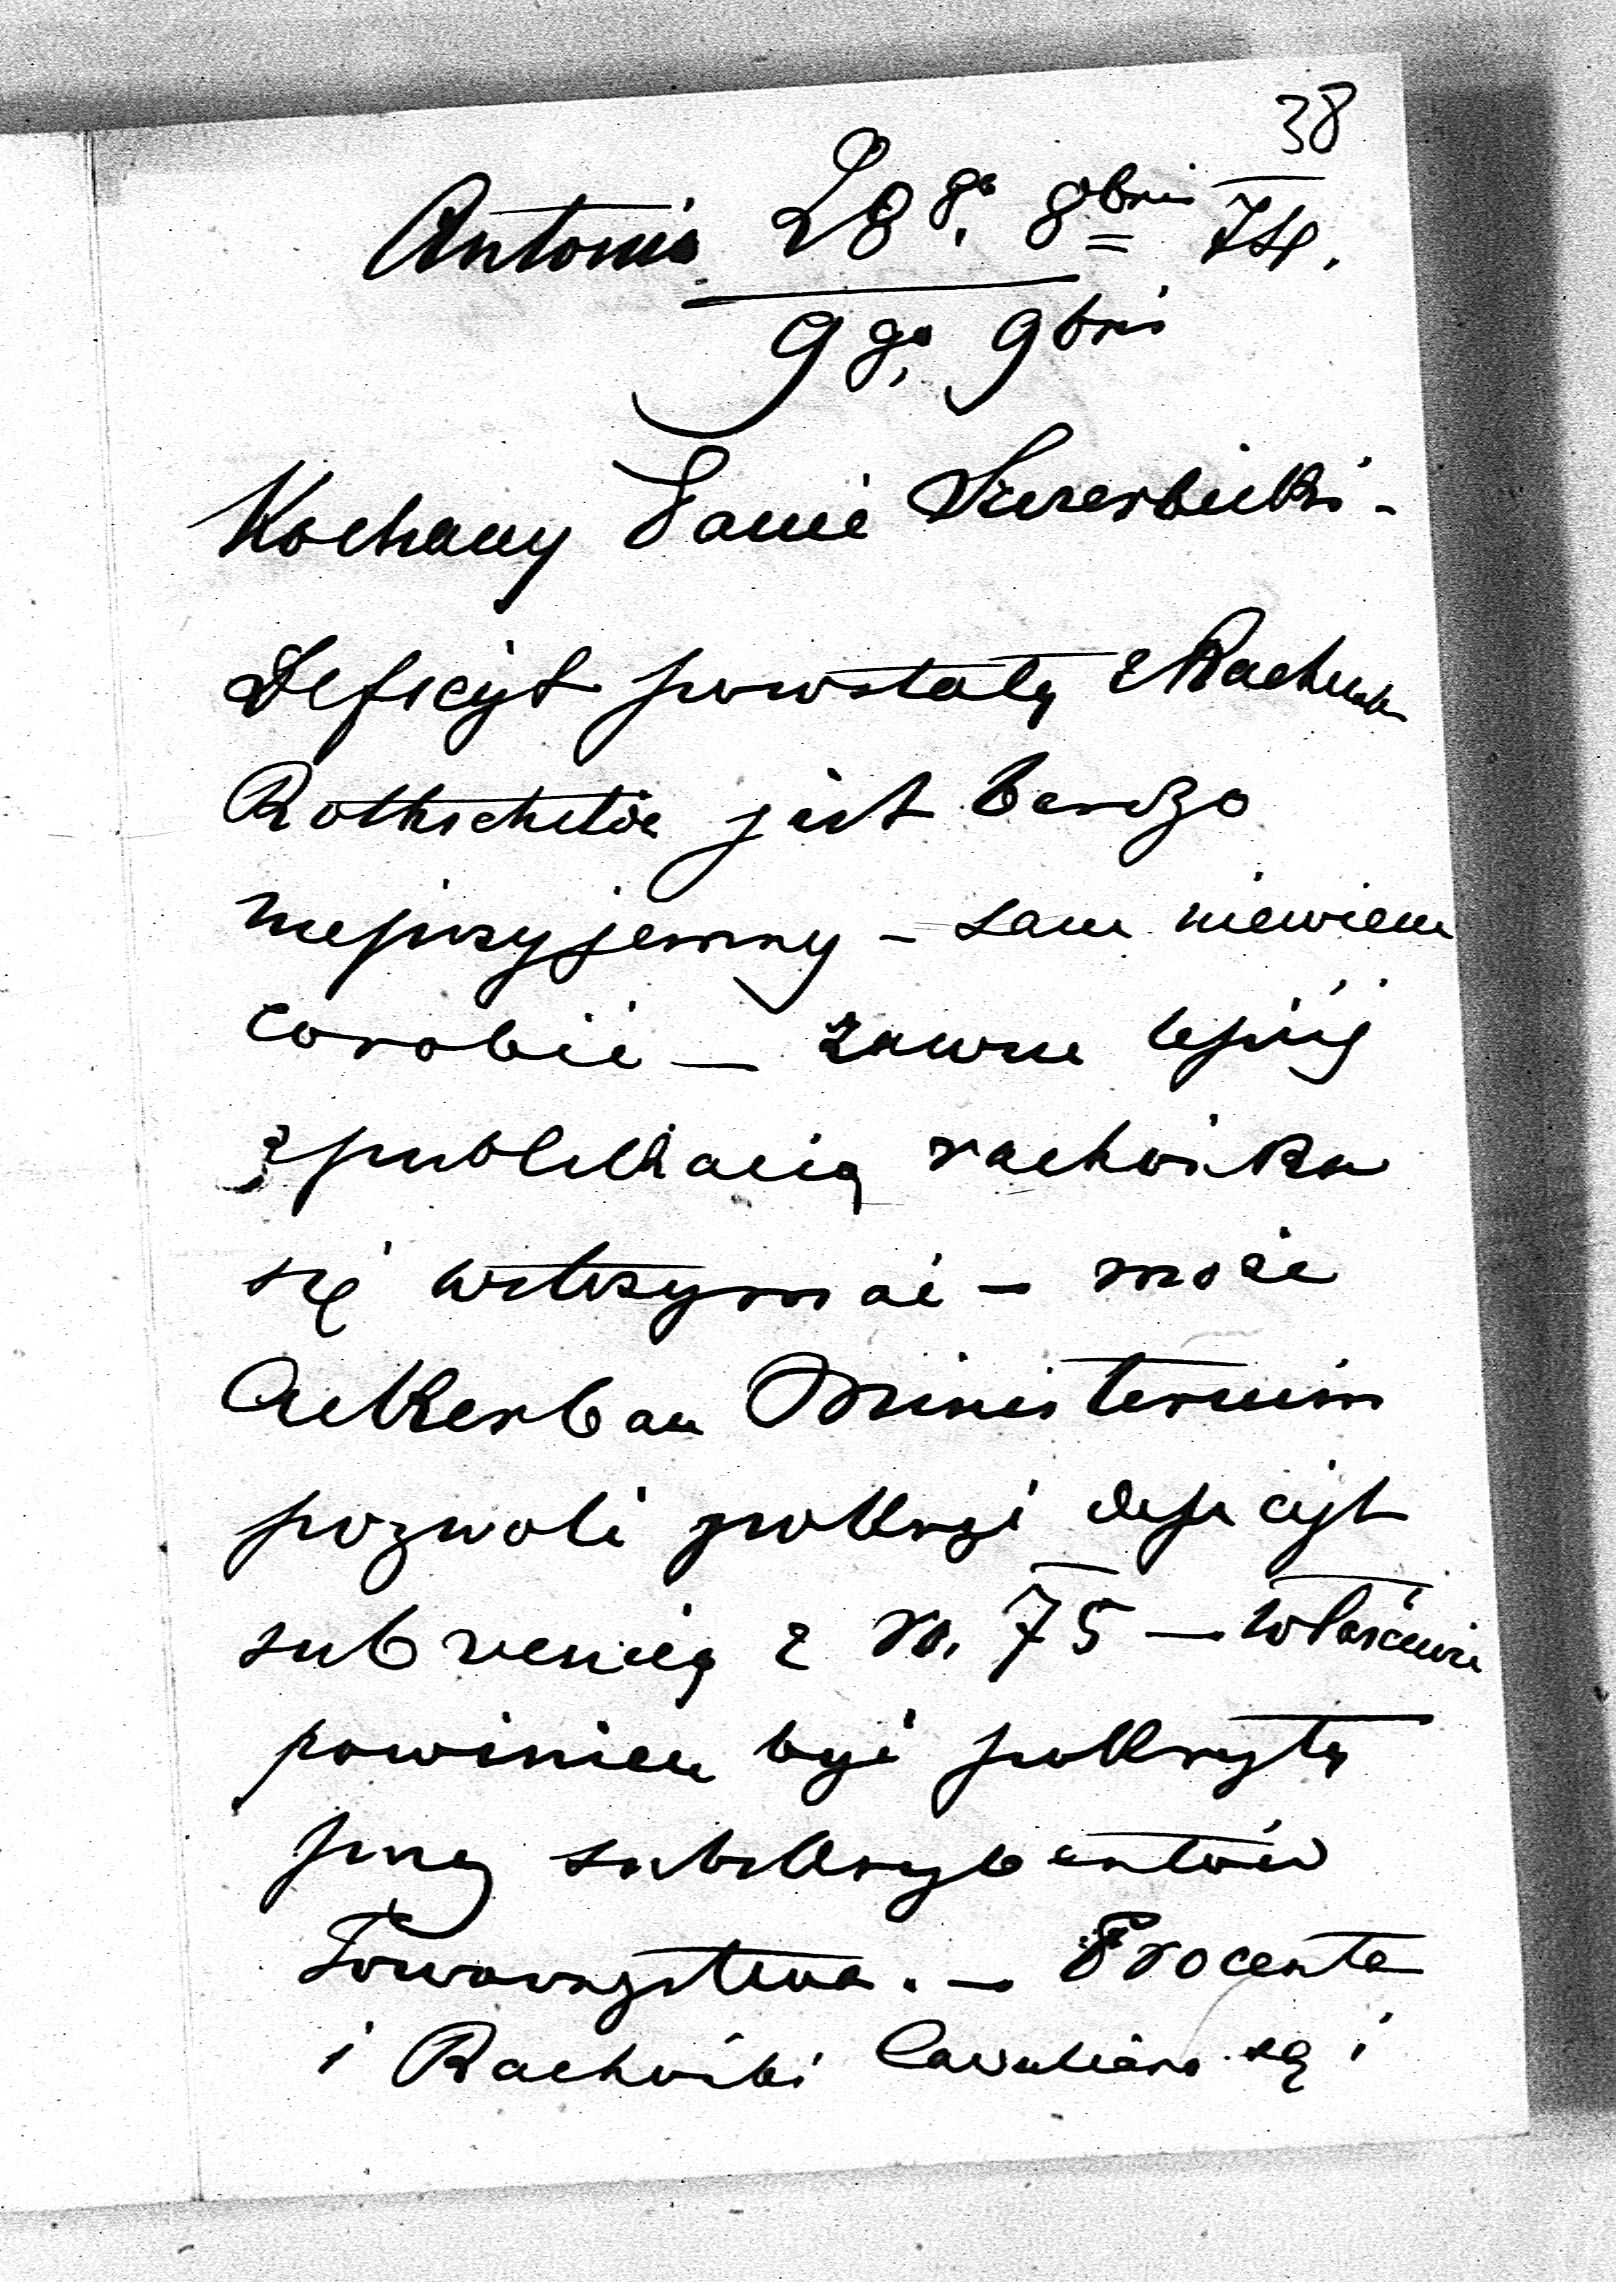 38
Antonin 28go. 8bris 74.
9go. 9bris
Kochany Panie Szczerbicki -
Deficyt powstały z Rachunku
Rothschilda jest bardzo
nieprzyjemny - sam niewiem
corobić - zawsze lepiéj
z publikacią rachunku
się wstrzymać - może
Ackerbau Ministerium
pozwoli pokryć deficyt
subvencią z r. 75 - właściwie
powinien być pokryty
przez subskrybentów
Towarzystwa. - Procenta
i Rachunki są i